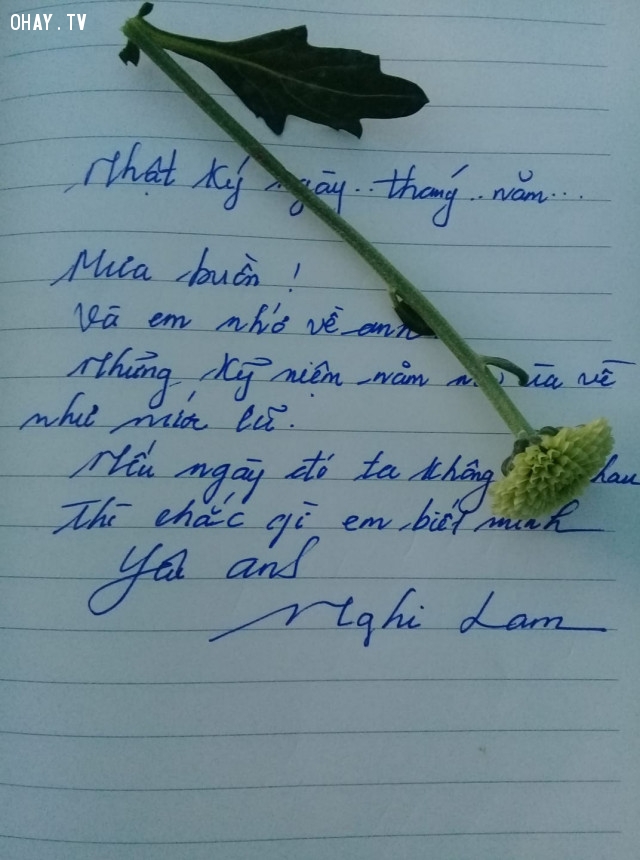 OHAY.TV
Nhật ký ngày.. tháng.. năm...
Mưa buồn !
Và em nhớ về anh
Những kỷ niệm năm ùa về
như nước lũ.
Nếu ngày đó ta không hau
Thì chắc gì em biết mình
Yêu anh
Nghi Lam